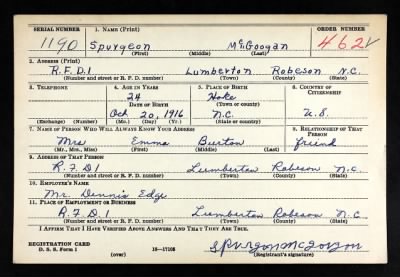 SERIAL NUMBER 1. NAME (Print) ORDER NUMBER
1190 Spurgeon McGoogan 462
(First) (Middle) (Last)
2. ADDRESS (Print)
R.F.D.1 Lumberton Robeson N.C.
(Number and street or R. F. D. number) (Town) (County) (State)
3. TELEPHONE 4. AGE IN YEARS 5. PLACE OF BIRTH 6. COUNTRY OF CITIZENSHIP
24 Hoke
DATE OF BIRTH (Town or county)
Oct 20, 1916 N.C. U.S.
(Exchange) (Number) (Mo.) (Day) (Yr.) (State or country)
7. NAME OF PERSON WHO WILL ALWAYS KNOW YOUR ADDRESS 8. RELATIONSHIP OF THAT PERSON
Mrs Emma Burton friend
(Mr., Mrs., Miss) (First) (Middle) (Last)
9. ADDRESS OF THAT PERSON
R.F.D.1 Lumberton Robeson N.C.
(Number and street or R. F. D. number) (Town) (County) (State)
10. EMPLOYER'S NAME
Mr. Dennis Edge
11. PLACE OF EMPLOYMENT OR BUSINESS
R.F.D.1 Lumberton Robeson N.C.
(Number and street or R. F. D. number) (Town) (County) (State)
I AFFIRM THAT I HAVE VERIFIED ABOVE ANSWERS AND THAT THEY ARE TRUE.
REGISTRATION CARD
D. S. S. Form 1 16-17105
(over) (Registrant's signature)